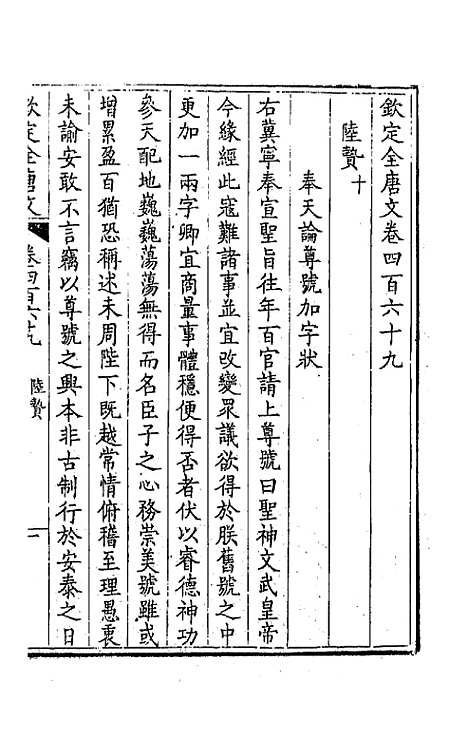 欽定全唐文卷四百六十九
陸贄十
奉天論尊號加字狀
右冀寧奉宣聖旨往年百官請上尊號曰聖神文武皇帝
今緣經此寇難諸事並宜改變眾議欲得於朕舊號之中
更加一兩字卿宜商量事體穩便得否者伏以睿德神功
參天配地巍巍蕩蕩無得而名臣子之心務崇美號雖或
增累盈百猶恐稱述未周陛下既越常情俯稽至理愚衷
未諭安敢不言竊以尊號之興本非古制行於安泰之日
欽定全唐文
卷四百六十九
陸贄
一